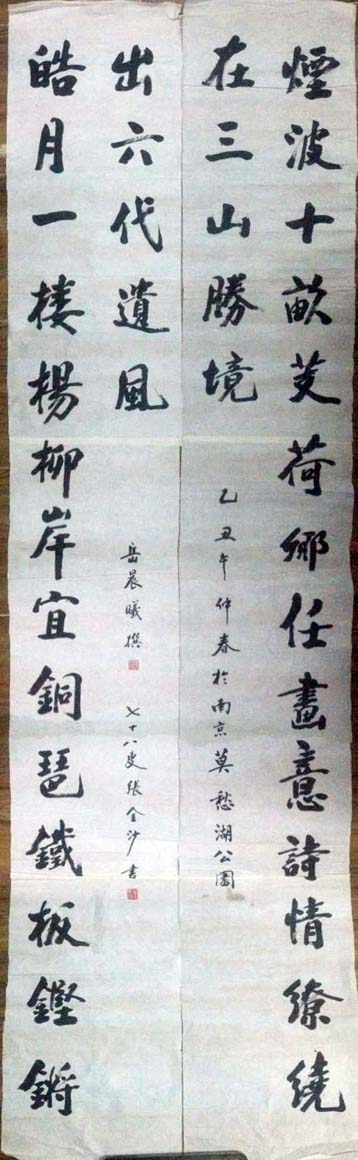 煙波十畝芰荷鄉任畫意詩情繚繞
在三山勝境
乙丑年仲春於南京莫愁湖公園
皓月一樓楊柳岸宜銅琶鐵板鏗鏘
出六代遺風
岳晨曦撰
七十八叟張金沙書